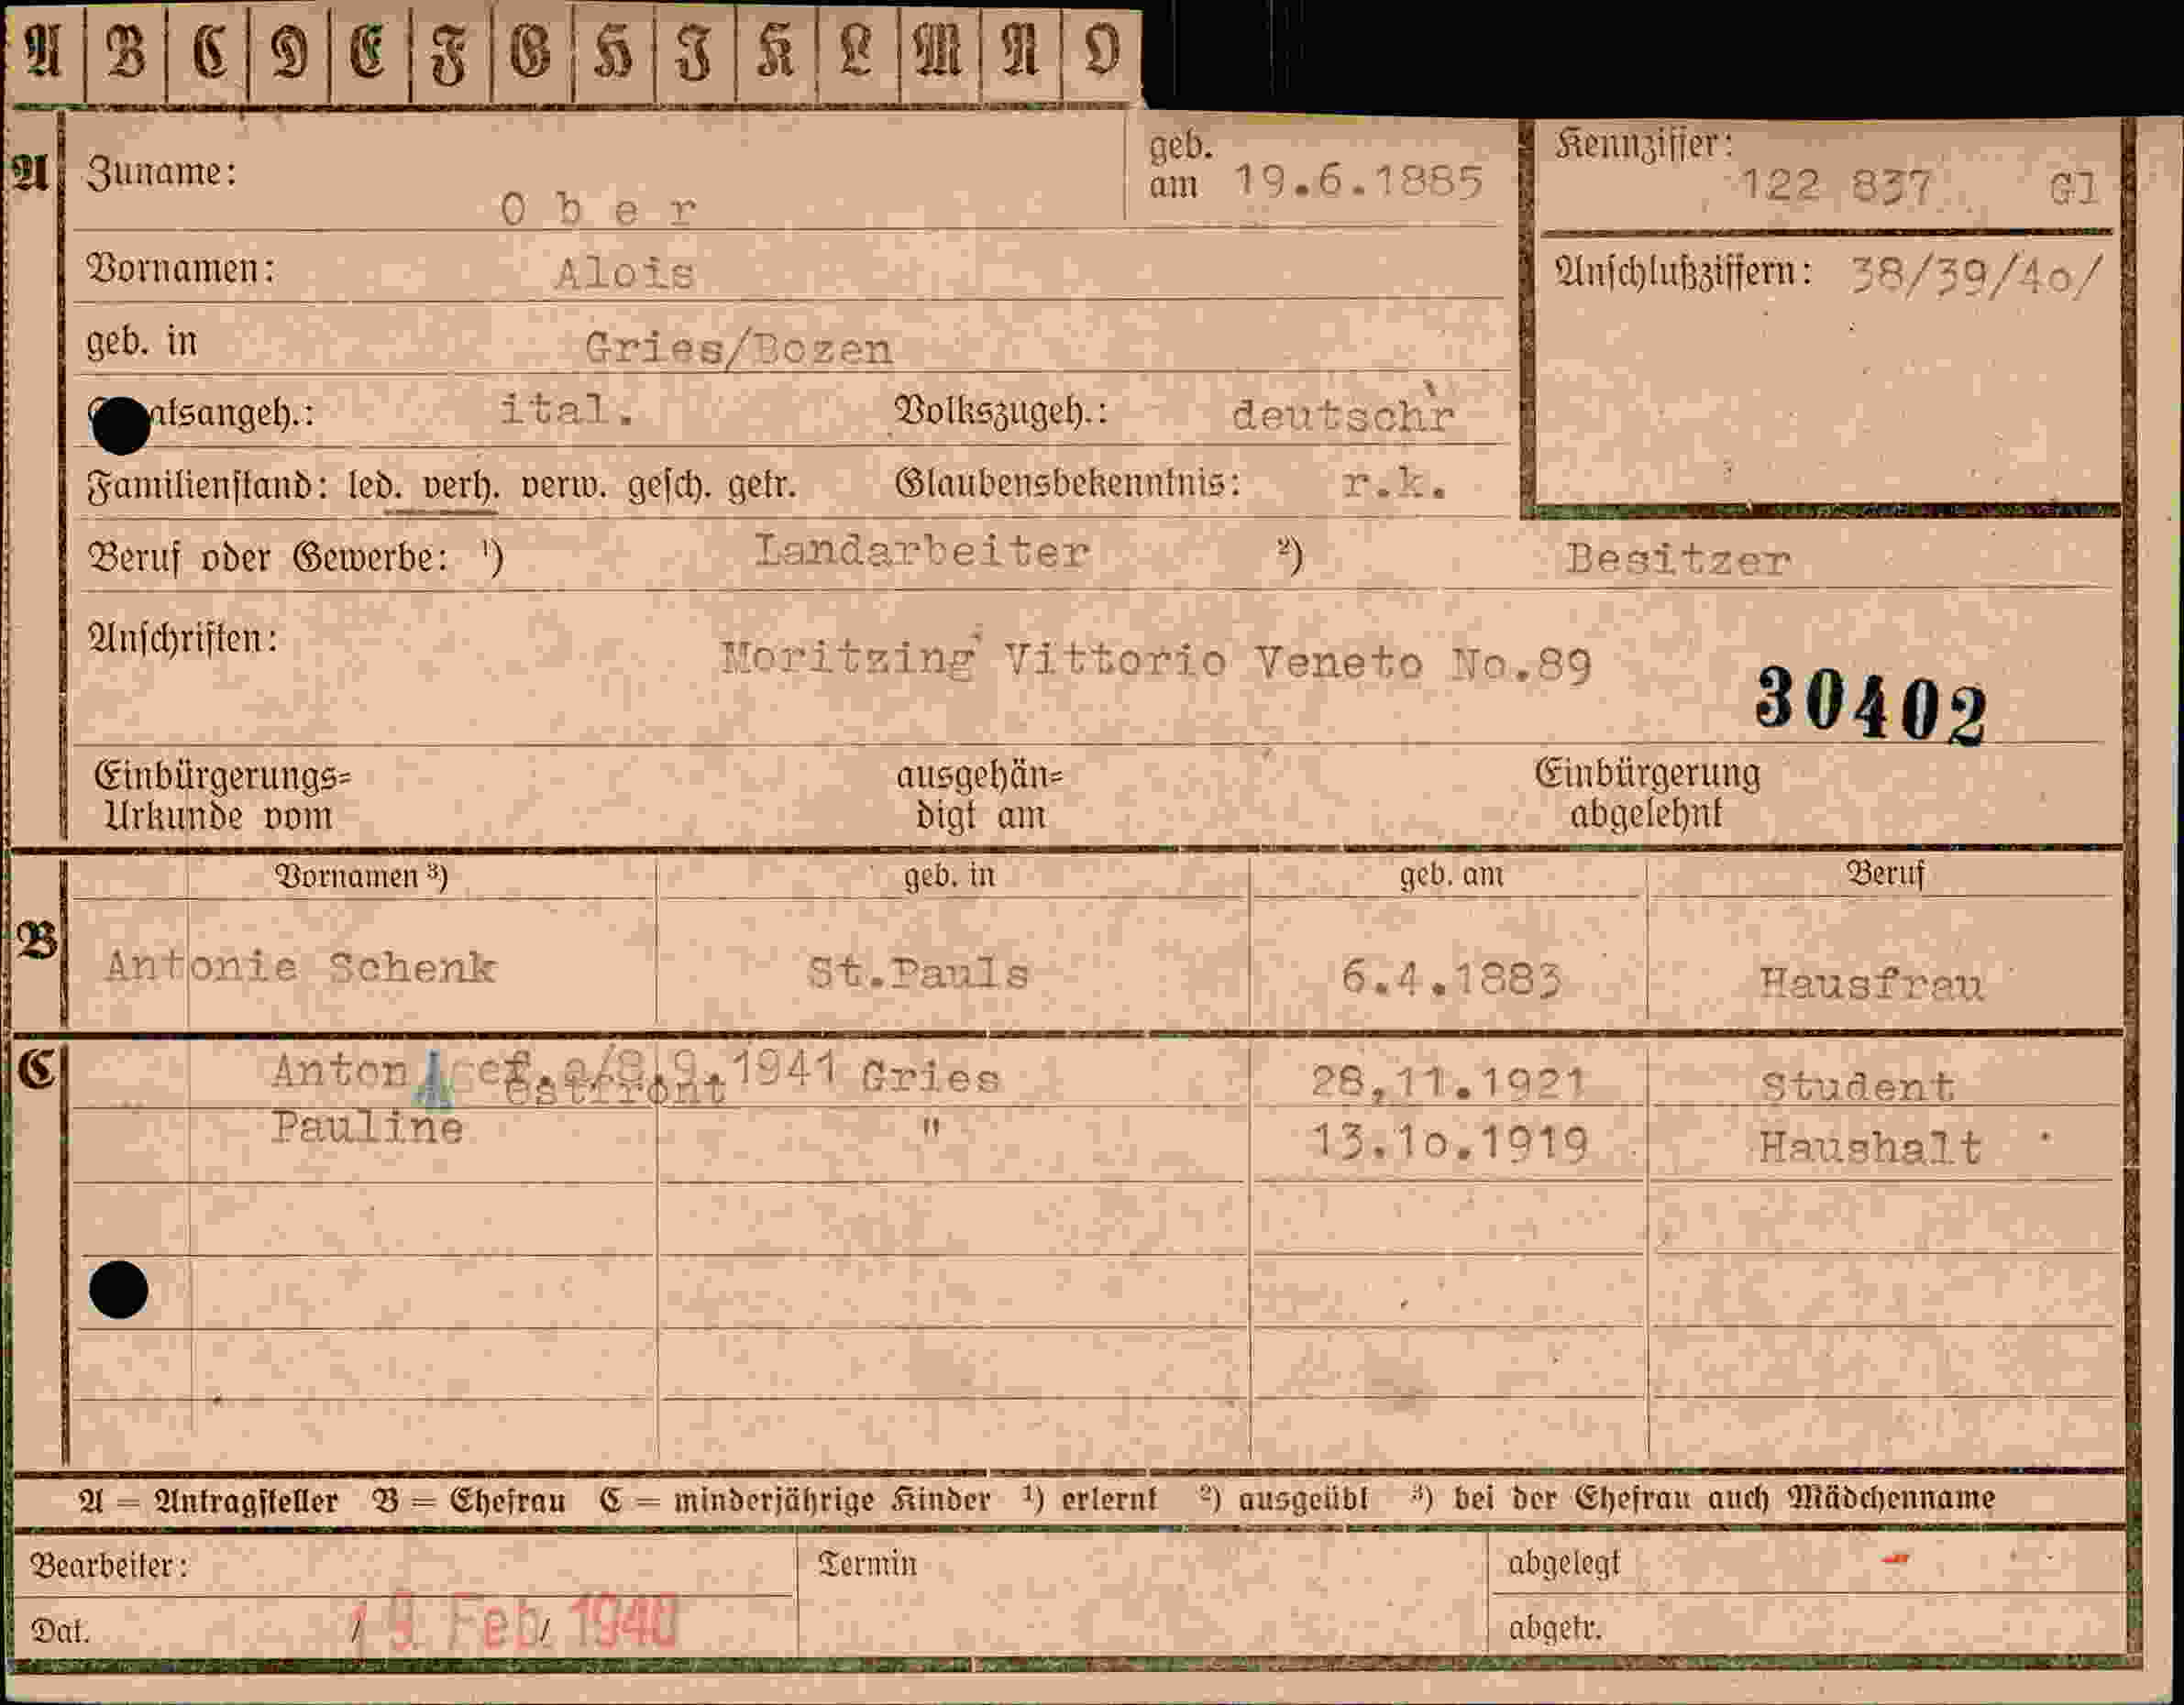 A B C D E F G H I K L M N O
A Zuname: Ober geb. am 19.6.1885 Kennziffer: 122 837 Gl
Vornamen: Alois Anschlußziffern: 38/39/4o/
geb. in Gries/Bozen
atsangeh.: ital. Volkszugeh.: deutsch
Familienstand: led. verh. verw. gesch. getr. Glaubensbekenntnis: r.k.
Beruf oder Gewerbe: ¹) Landarbeiter ²) Besitzer
Anschriften: Moritzing Vittorio Veneto No.89
30402
Einbürgerungs= ausgehän= Einbürgerung
Urkunde vom digt am abgelehnt
Vornamen ³) geb. in geb. am Beruf
B Antonie Schenk St.Pauls 6.4.1883 Hausfrau
C Anton gef. 9.1941 Gries 28.11.1921 Student
Ostfront
Pauline " 13.1o.1919 Haushalt
A = Antragsteller B = Ehefrau C = minderjährige Kinder ¹) erlernt ²) ausgeübt ³) bei der Ehefrau auch Mädchenname
Bearbeiter: Termin abgelegt
Dat. 19. Feb. 1940 abgetr.